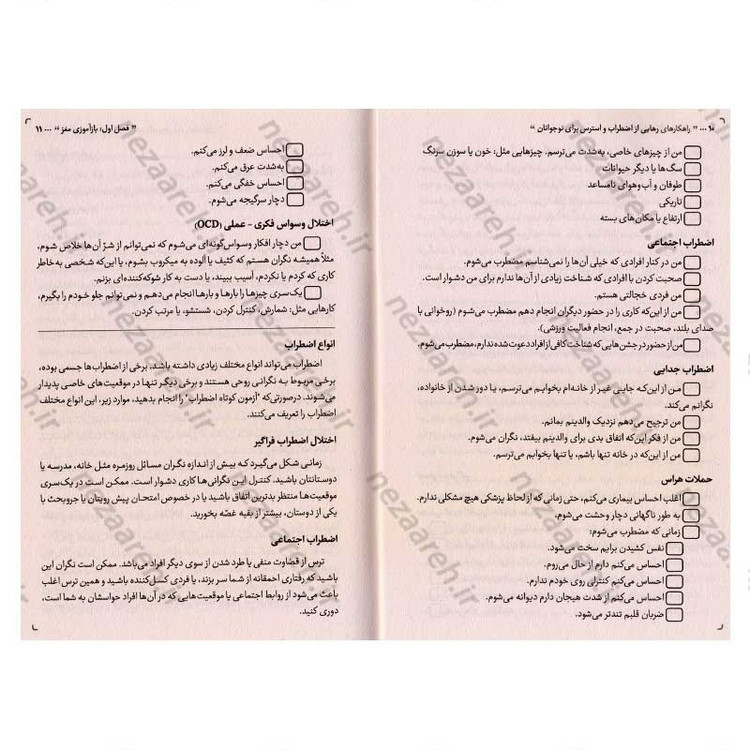 ۱۰ ... " راهکارهای رهایی از اضطراب و استرس برای نوجوانان "
من از چیزهای خاصی، به‌شدت می‌ترسم. چیزهایی مثل: خون یا سوزن سرنگ
سگ‌ها یا دیگر حیوانات
طوفان و آب‌وهوای نامساعد
تاریکی
ارتفاع یا مکان‌های بسته
اضطراب اجتماعی
من در کنار افرادی که خیلی آن‌ها را نمی‌شناسم مضطرب می‌شوم.
صحبت کردن با افرادی که شناخت زیادی از آن‌ها ندارم برای من دشوار است.
من فردی خجالتی هستم.
من از این‌که کاری را در حضور دیگران انجام دهم مضطرب می‌شوم (روخوانی با
صدای بلند، صحبت در جمع، انجام فعالیت ورزشی).
من از حضور در جشن‌هایی که شناخت کافی از افراد دعوت شده ندارم، مضطرب می‌شوم.
اضطراب جدایی
من از این‌که جایی غیر از خانه‌ام بخوابم می‌ترسم، یا دور شدن از خانواده،
نگرانم می‌کند.
من ترجیح می‌دهم نزدیک والدینم بمانم.
من از فکر این‌که اتفاق بدی برای والدینم بیفتد، نگران می‌شوم.
من از این‌که در خانه تنها باشم، یا تنها بخوابم می‌ترسم.
حملات هراس
اغلب احساس بیماری می‌کنم، حتی زمانی که از لحاظ پزشکی هیچ مشکلی ندارم.
به طور ناگهانی دچار وحشت می‌شوم.
زمانی که مضطرب می‌شوم:
نفس کشیدن برایم سخت می‌شود.
احساس می‌کنم دارم از حال می‌روم.
احساس می‌کنم کنترلی روی خودم ندارم.
احساس می‌کنم از شدت هیجان دارم دیوانه می‌شوم.
ضربان قلبم تندتر می‌شود.
" فصل اول: بازآموزی مغز " ... ۱۱
احساس ضعف و لرز می‌کنم.
به‌شدت عرق می‌کنم.
احساس خفگی می‌کنم.
دچار سرگیجه می‌شوم.
اختلال وسواس فکری - عملی (OCD)
من دچار افکار وسواس‌گونه‌ای می‌شوم که نمی‌توانم از شرّ آن‌ها خلاص شوم.
مثلاً همیشه نگران هستم که کثیف یا آلوده به میکروب بشوم، یا این‌که شخصی به‌خاطر
کاری که کردم یا نکردم، آسیب ببیند، یا دست به کار شوکه‌کننده‌ای بزنم.
یک‌سری چیزها را بارها و بارها انجام می‌دهم و نمی‌توانم جلو خودم را بگیرم،
کارهایی مثل: شمارش، کنترل کردن، شستشو، یا مرتب کردن.
انواع اضطراب
اضطراب می‌تواند انواع مختلف زیادی داشته باشد. برخی از اضطراب‌ها جسمی بوده،
برخی مربوط به نگرانی روحی هستند و برخی دیگر تنها در موقعیت‌های خاصی پدیدار
می‌شوند. درصورتی‌که "آزمون کوتاه اضطراب" را انجام بدهید، موارد زیر، این انواع مختلف
اضطراب را تعریف می‌کنند.
اختلال اضطراب فراگیر
زمانی شکل می‌گیرد که بیش از اندازه نگران مسائل روزمره مثل خانه، مدرسه یا
دوستانتان باشید. کنترل این نگرانی‌ها کاری دشوار است. ممکن است در یک‌سری
موقعیت‌ها منتظر بدترین اتفاق باشید یا در خصوص امتحان پیش رویتان یا جروبحث با
یکی از دوستان، بیشتر از بقیه غصّه بخورید.
اضطراب اجتماعی
ترس از قضاوت منفی یا طرد شدن از سوی دیگر افراد می‌باشد. ممکن است نگران این
باشید که رفتاری احمقانه از شما سر بزند، یا فردی کسل‌کننده باشید و همین ترس اغلب
باعث می‌شود از روابط اجتماعی یا موقعیت‌هایی که در آن‌ها افراد حواسشان به شما است،
دوری کنید.
nezaareh.ir